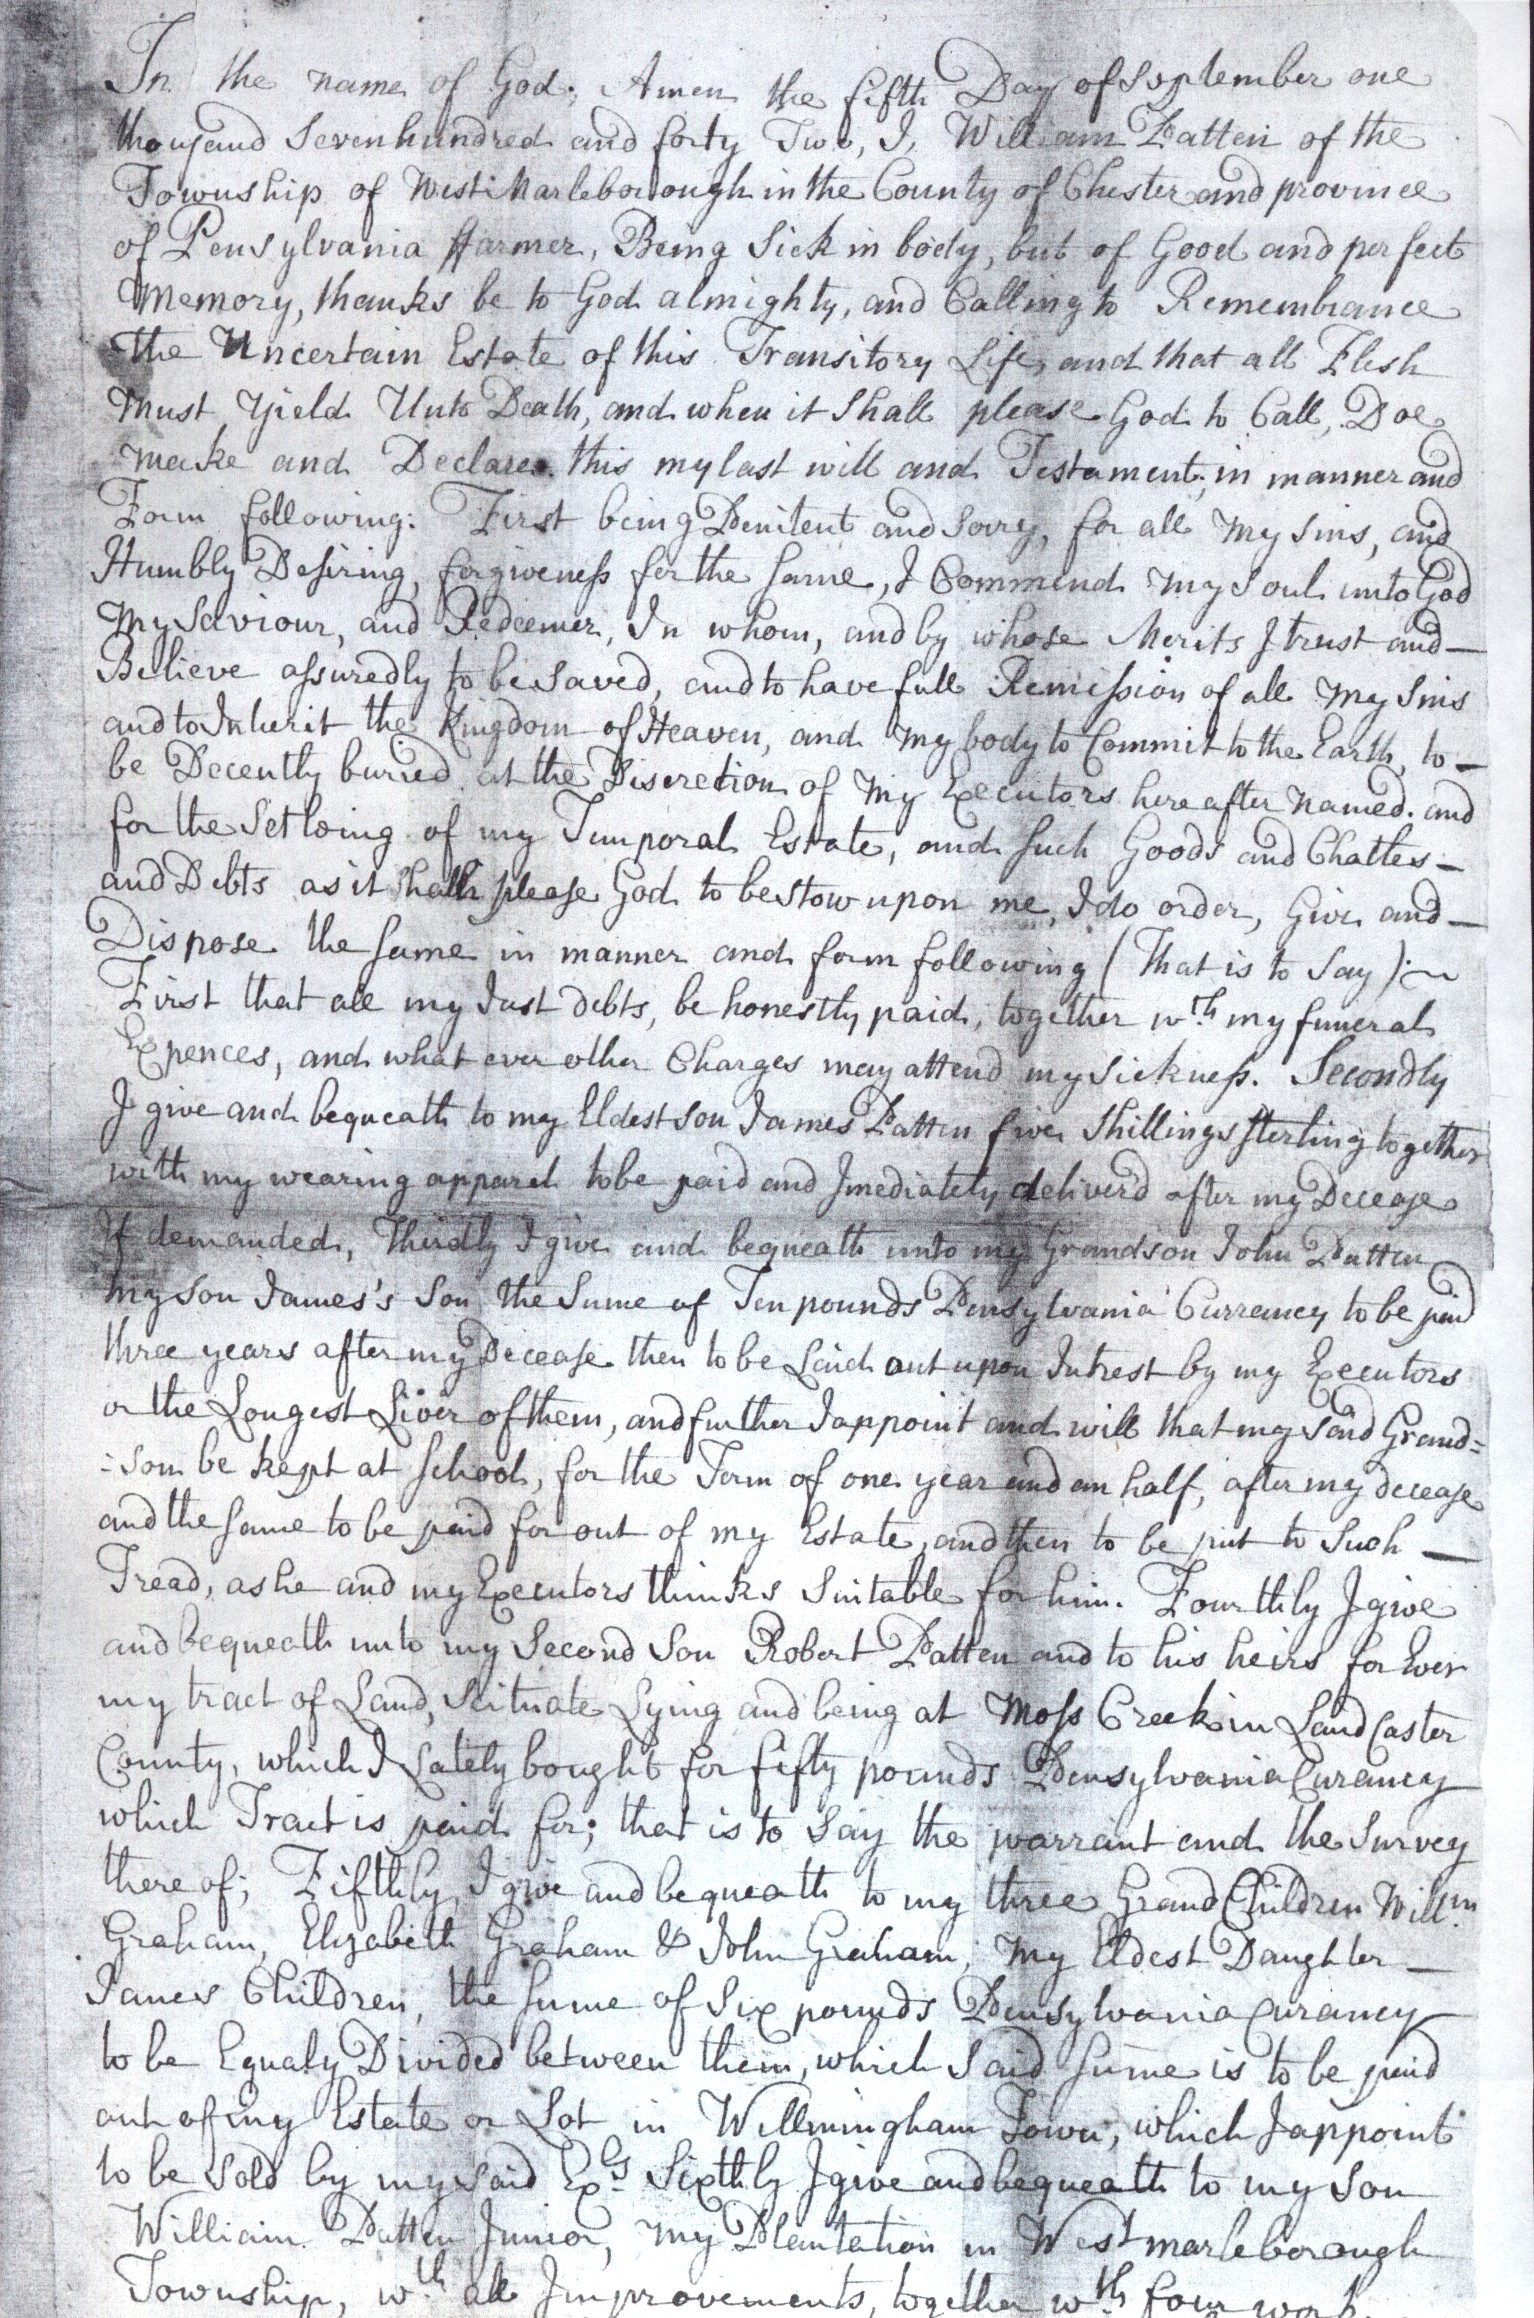 In the name of God, Amen the fifth Day of September one
thousand Sevenhundred and forty Two, I, William Patten of the
Township of West Marleborough in the County of Chester and province
of Pensylvania ffarmer, Being Sick in body, but of Good and perfect
Memory, thanks be to God almighty, and Calling to Remembrance
the Uncertain Estate of this Transitory Life, and that all Flesh
Must Yield Unto Death, and when it Shall please God to Call, Doe
make and Declare this my last will and Testament, in manner and
Form following: First being Penitent and Sorry, for all my Sins, and
Humbly Desiring, forgiveness for the Same, I Commend my Soul unto God
My Saviour, and Redeemer, In whom, and by whose Merits I trust and—
Believe assuredly to be Saved, and to have full Remission of all my Sins
and to Inherit the Kingdom of Heaven, and my body to Commit to the Earth, to—
be Decently buried at the Discretion of my Executors here after named. and
for the Setloing of my Temporal Estate, and Such Goods and Chattes—
and Debts as it Shall please God to bestow upon me, I do order, Give and—
Dispose the Same in manner and form following (That is to Say):~
First that all my Just debts, be honestly paid, together wth my funeral
Expences, and what ever other Charges may attend my Sickness. Secondly
I give and bequeath to my Eldest Son James Patten five Shillings Sterling together
with my wearing apparel to be paid and Imediately deliver'd after my Decease
If demanded, Thirdly I give and bequeath unto my Grandson John Patten
My Son James's Son the Sume of Ten pounds Pensylvania Currancy to be paid
three years after my Decease then to be Laid out upon Intrest by my Executors
or the Longest Liver of them, and further I appoint and will that my Said Grand=
=Son be kept at School, for the Term of one year and an half, after my decease
and the Same to be paid for out of my Estate, and then to be put to Such —
Tread, as he and my Executors thinks Suitable for him. Fourthly I give
and bequeath unto my Second Son Robert Patten and to his heirs for Ever
my tract of Land, Scituate Lying and being at Moss Creek in Land Caster
County, which I Lately bought for fifty pounds Pensylvania Curancy
which Tract is paid for; that is to Say the warrant and the Survey
there of; Fifthly, I give and bequeath to my three Grand Children Willm
Graham, Elizabeth Graham & John Graham, My Eldest Daughter —
Janes Children, the Sume of Six pounds Pensylvania Curancy
to be Equaly Divided between them, which Said Sume is to be paid
out of my Estate or Lot in Willmingham Town, which I appoint
to be Sold by my Said Exrs Sixthly I give and bequeath to my Son
William Patten Junior, My Plantation in West marleborough
Township, wth all Improvements, together wth four work